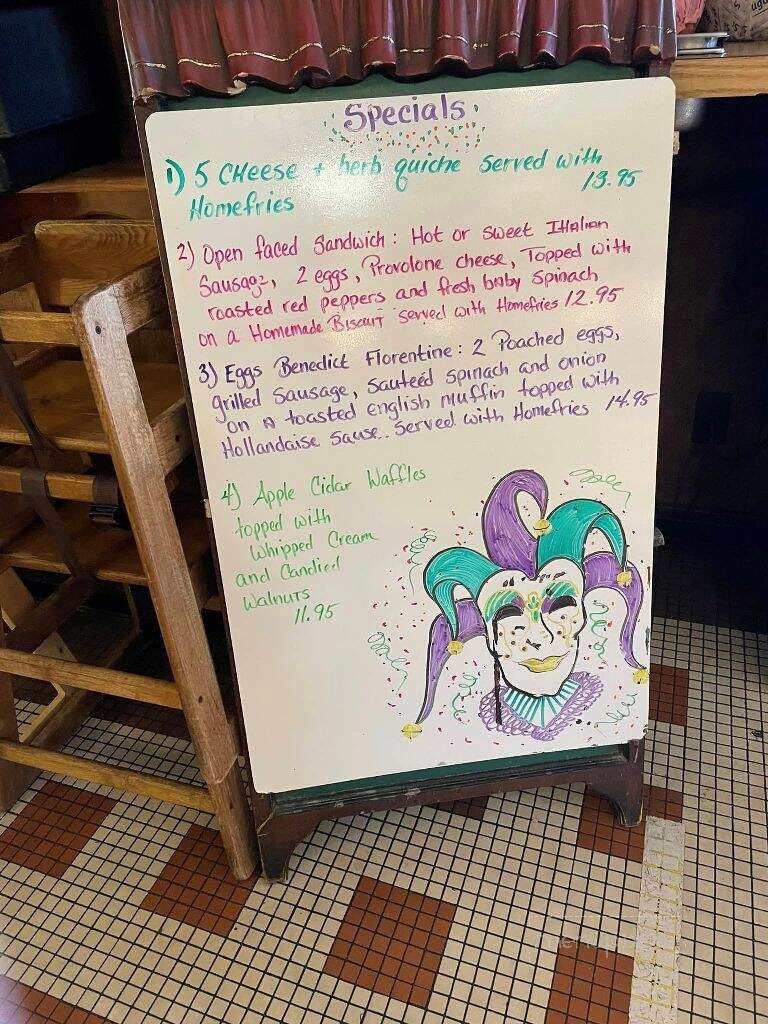 Specials
1) 5 CHeese + herb quiche Served with
Homefries 13.95
2) Open faced Sandwich: Hot or sweet Ithlian
Sausage, 2 eggs, Provolone cheese, Topped with
roasted red peppers and fresh baby spinach
on a Homemade Biscuit served with Homefries 12.95
3) Eggs Benedict Florentine: 2 Poached eggs,
grilled Sausage, Sauteéd spinach and onion
on A toasted english muffin topped with
Hollandaise Sause.. Served with Homefries 14.95
4) Apple Cidar Waffles
topped with
Whipped Cream
and Candied
Walnuts
11.95